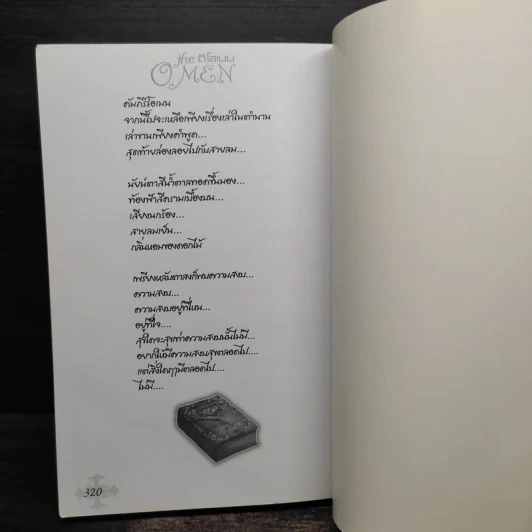 the ดิโอเมน
OMEN
คัมภีร์โอเมน
จากนี้ไปจะเหลือเพียงเรื่องเล่าในตำนาน
เล่าขานเพียงคำพูด...
สุดท้ายล่องลอยไปกับสายลม...
นัยน์ตาสีน้ำตาลทอดขึ้นมอง...
ท้องฟ้าสีครามเบื้องบน...
เสียงนกร้อง...
สายลมเย็น...
กลิ่นหอมของดอกไม้
เพียงหลับตาลงก็พบความสงบ...
ความสงบ...
ความสงบอยู่ที่ไหน...
อยู่ที่ใจ....
สุขใดจะสุขเท่าความสงบนั้นไม่มี...
อยากให้มีความสงบสุขตลอดไป....
แต่สิ่งใดๆมีตลอดไป....
ไม่มี....
320